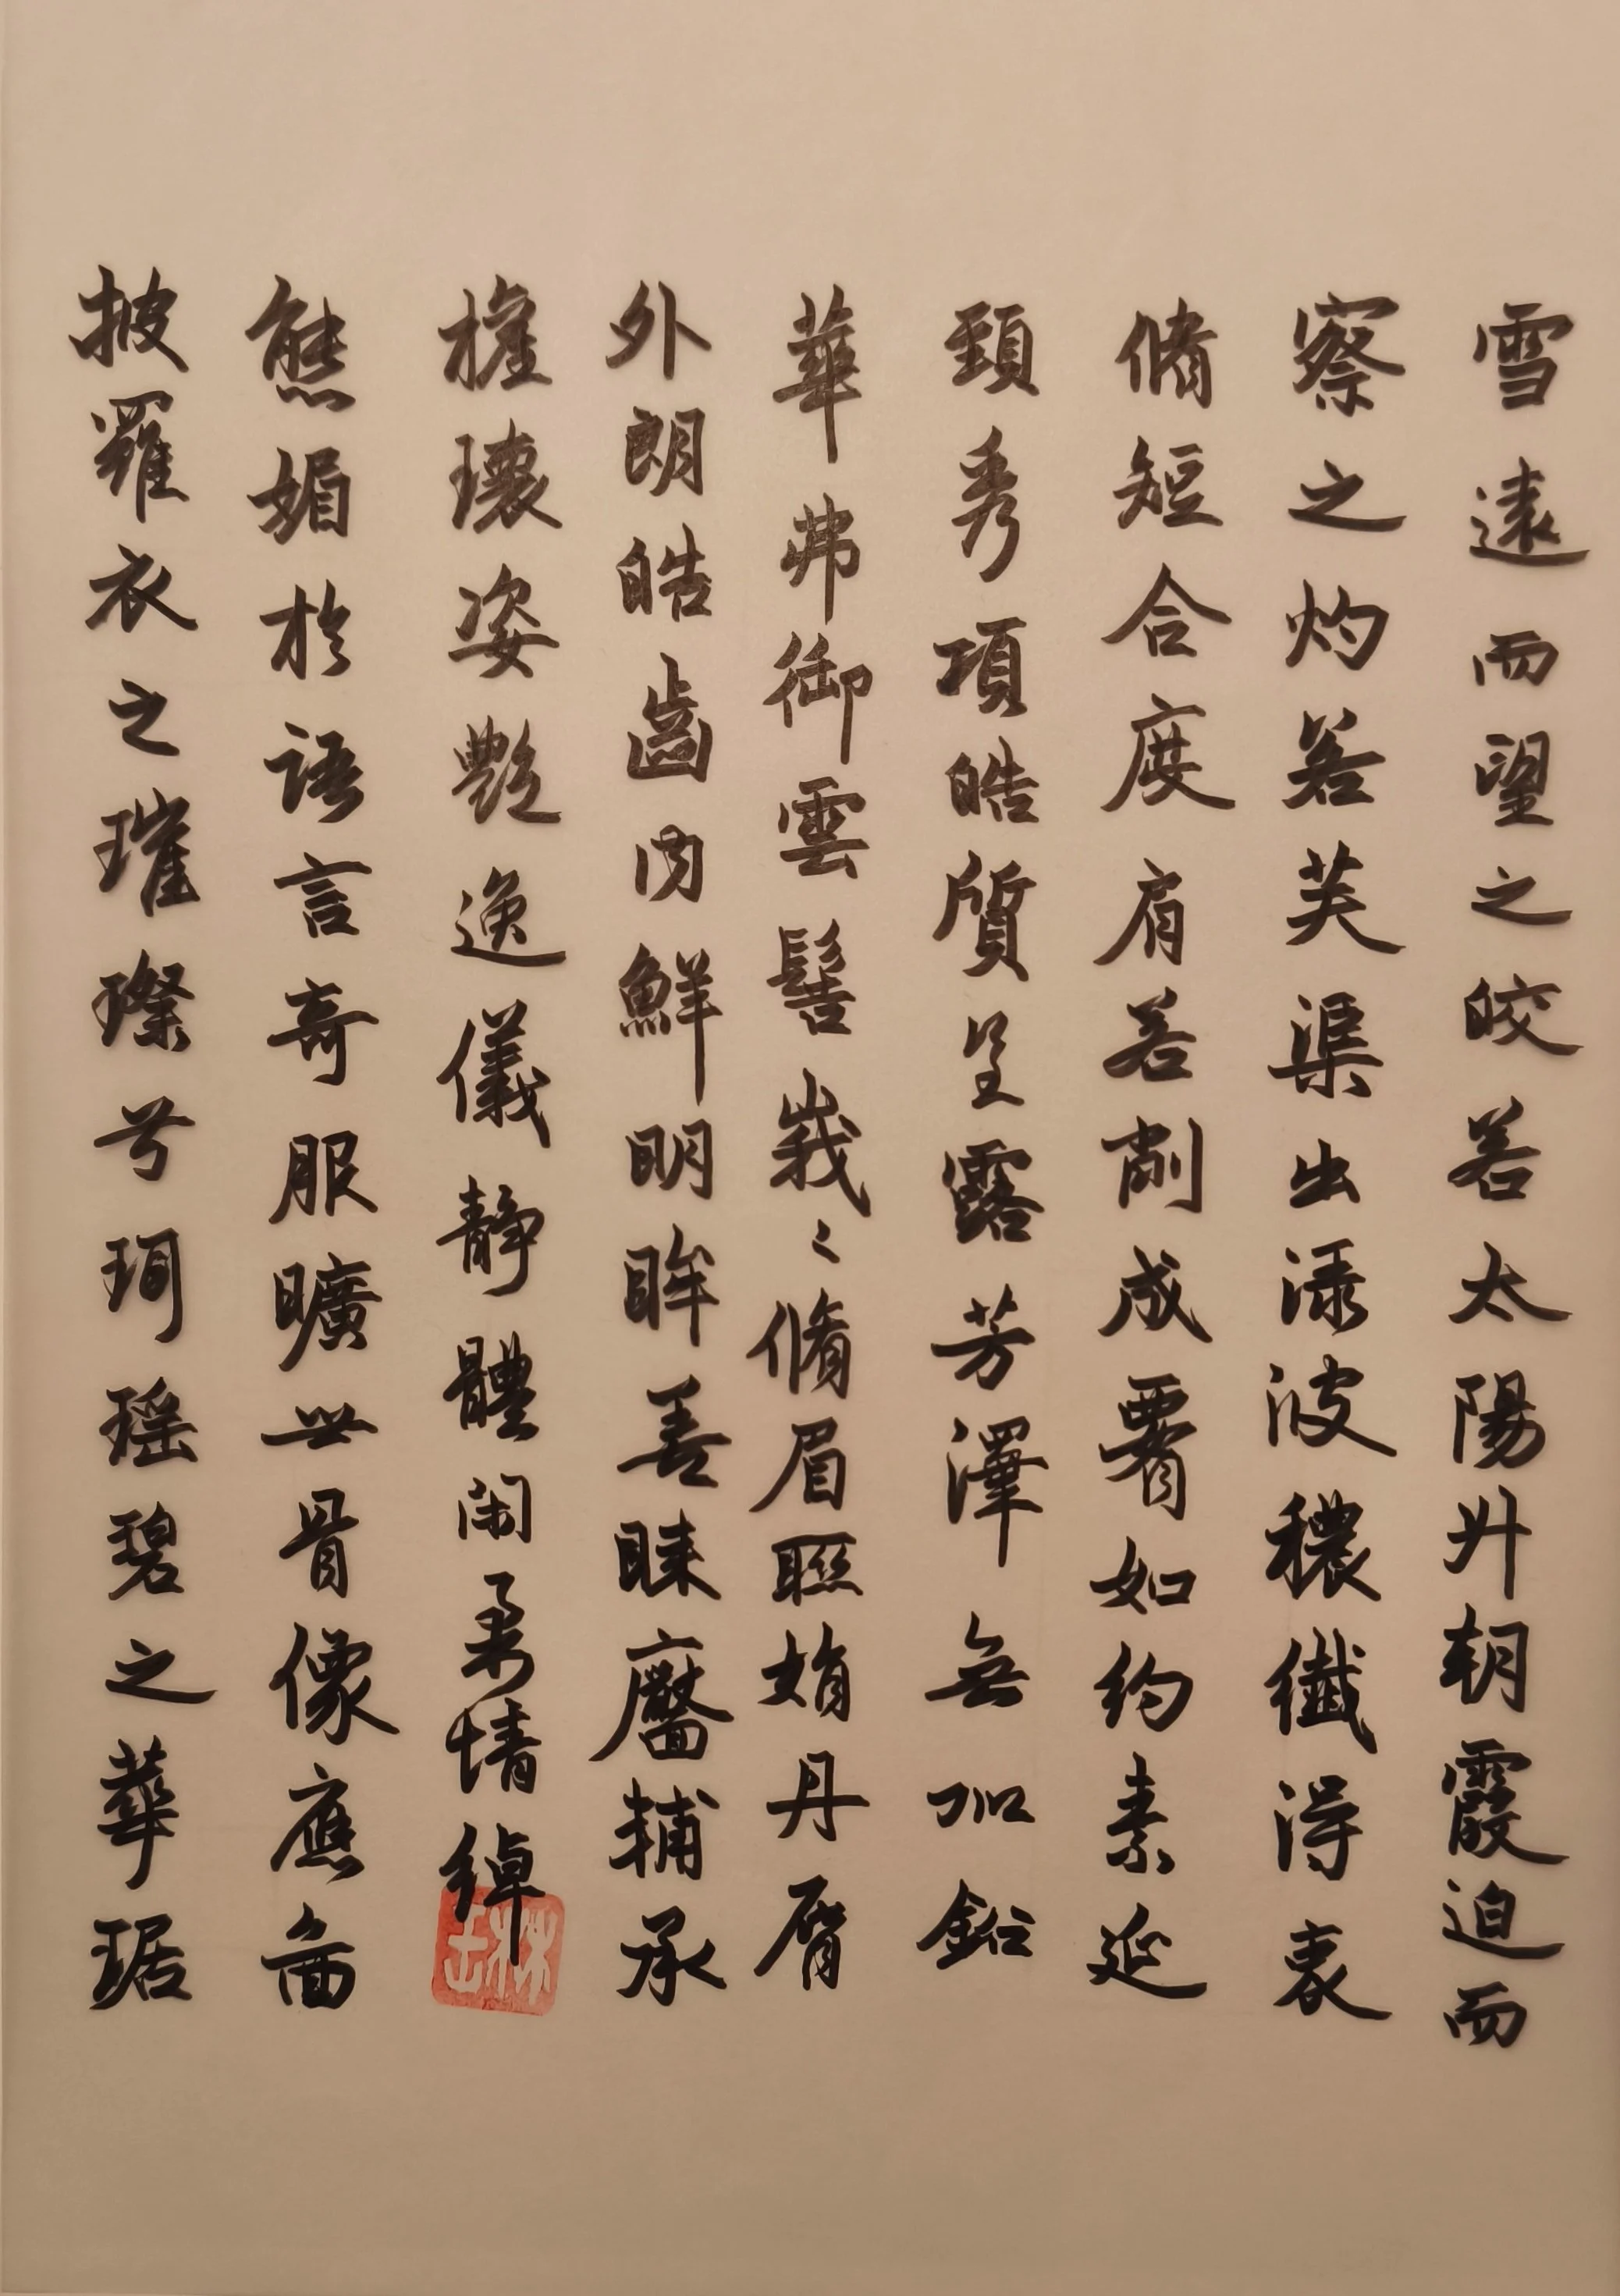 雪遠而望之皎若太陽升朝霞迫而
察之灼若芙渠出渌波穠纖得衷
脩短合度肩若削成腰如約素延
頸秀項皓質呈露芳澤無加鉛
華弗御雲髻峩〻脩眉聯娟丹脣
外朗皓齒内鮮明眸善睞靨輔承
權瓌姿艷逸儀靜體閑柔情綽
態媚於語言奇服曠世骨像應圖
披羅衣之璀璨兮珥瑶碧之華琚